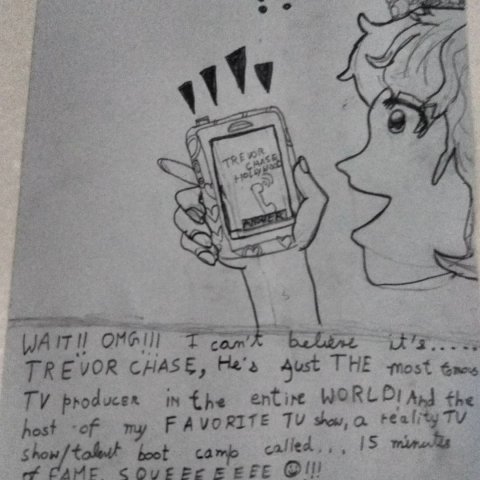 TREVOR
CHASE
HOLLYWOOD
ANSWER
WAIT!! OMG!!! I can't believe it's.....
TREVOR CHASE, He's just THE most famous
TV producer in the entire WORLD! And the
host of my FAVORITE TV show, a reality TV
show/talent boot camp called... 15 minutes
of FAME. SQUEEEEEEE 😃!!!